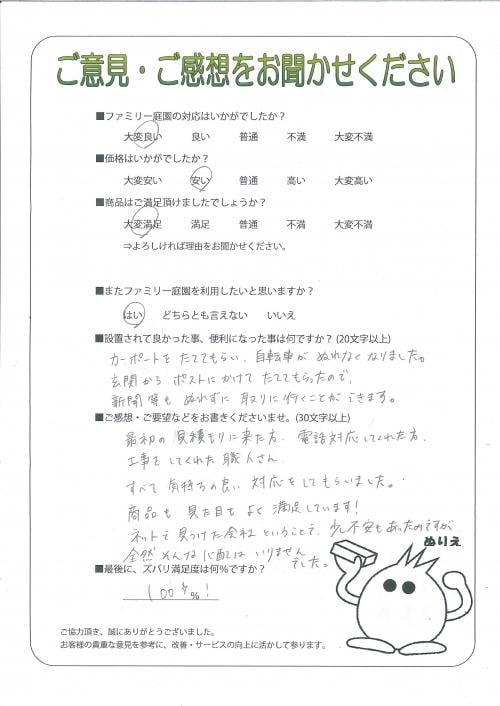 ご意見・ご感想をお聞かせください
■ファミリー庭園の対応はいかがでしたか？
大変良い　良い　普通　不満　大変不満
■価格はいかがでしたか？
大変安い　安い　普通　高い　大変高い
■商品はご満足頂けましたでしょうか？
大変満足　満足　普通　不満　大変不満
⇒よろしければ理由をお聞かせください。
■またファミリー庭園を利用したいと思いますか？
はい　どちらとも言えない　いいえ
■設置されて良かった事、便利になった事は何ですか？(20文字以上)
カーポートをたててもらい、自転車がぬれなくなりました。
玄関からポストにかけてたててもらったので、
新聞等もぬれずに取りに行くことができます。
■ご感想・ご要望などをお書きくださいませ。(30文字以上)
最初の見積もりに来た方、電話対応してくれた方、
工事をしてくれた職人さん、
すべて気持ちの良い対応をしてもらいました。
商品も見た目もよく満足しています！
ネットで見つけた会社ということで、少し不安もあったのですが
全然そんな心配はいりませんでした。
■最後に、ズバリ満足度は何％ですか？
100%％！
ぬりえ
ご協力頂き、誠にありがとうございました。
お客様の貴重な意見を参考に、改善・サービスの向上に活かして参ります。